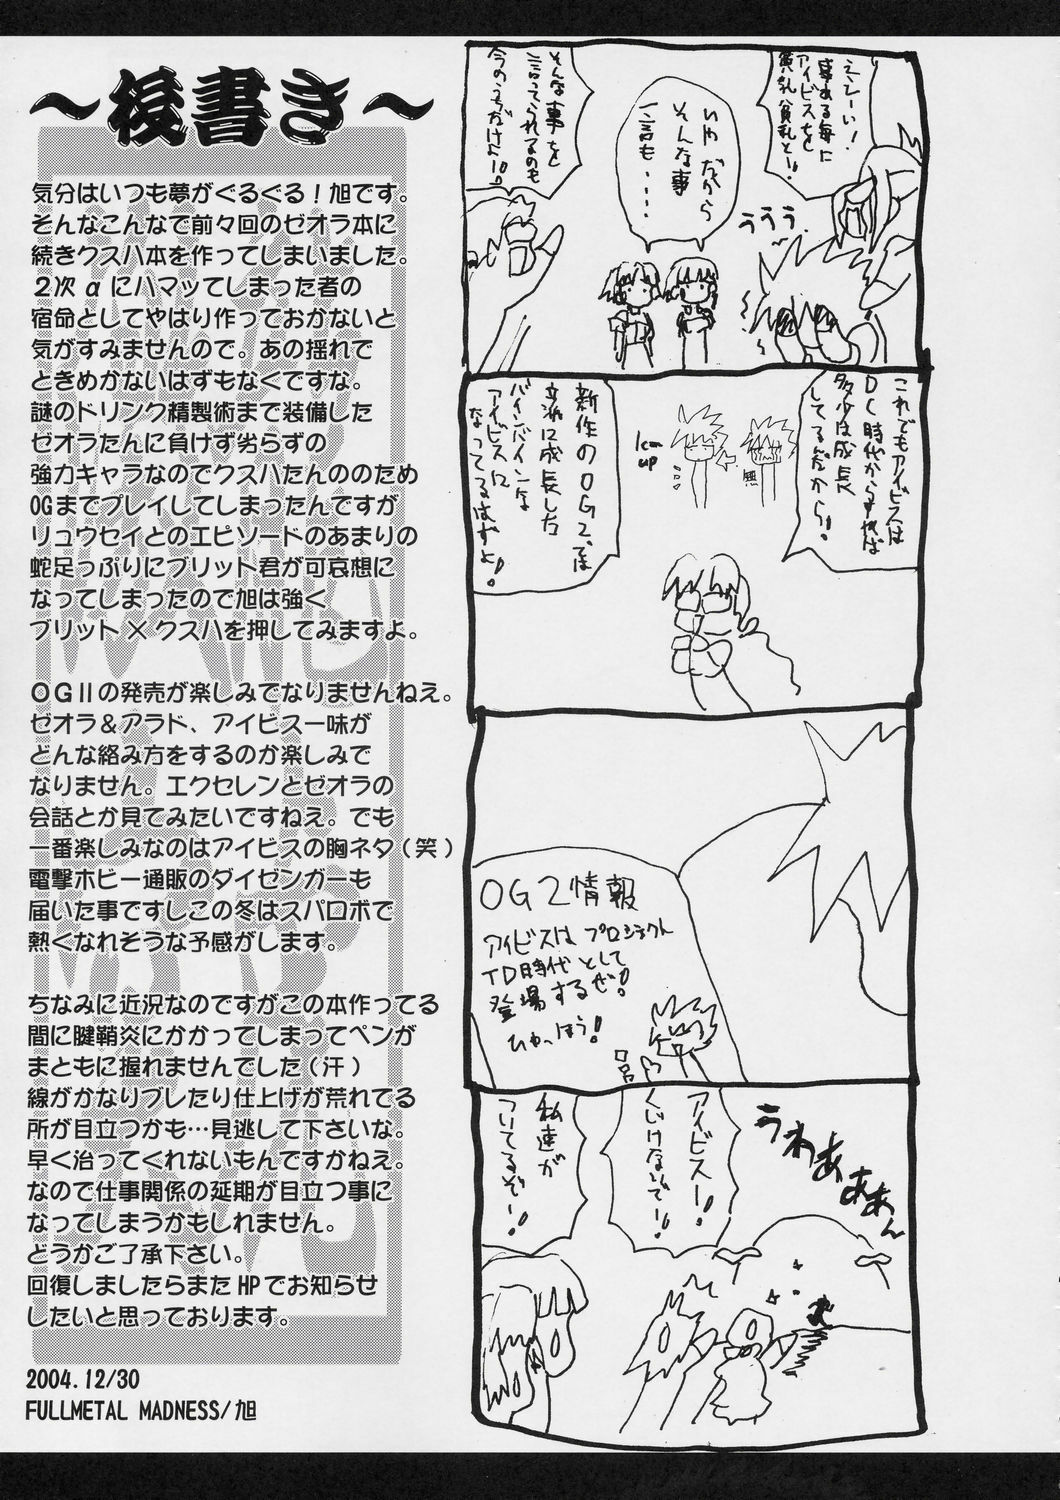 ～後書き～
気分はいつも夢がぐるぐる！旭です。
そんなこんなで前々回のゼオラ本に
続きクスハ本を作ってしまいました。
２次αにハマッてしまった者の
宿命としてやはり作っておかないと
気がすみませんので。あの揺れで
ときめかないはずもなくですな。
謎のドリンク精製術まで装備した
ゼオラたんに負けず劣らずの
強力キャラなのでクスハたんののため
OGまでプレイしてしまったんですが
リュウセイとのエピソードのあまりの
蛇足っぷりにブリット君が可哀想に
なってしまったので旭は強く
ブリット×クスハを押してみますよ。
ＯＧⅡの発売が楽しみでなりませんねえ。
ゼオラ＆アラド、アイビス一味が
どんな絡み方をするのか楽しみで
なりません。エクセレンとゼオラの
会話とか見てみたいですねえ。でも
一番楽しみなのはアイビスの胸ネタ（笑）
電撃ホビー通販のダイゼンガーも
届いた事ですしこの冬はスパロボで
熱くなれそうな予感がします。
ちなみに近況なのですがこの本作ってる
間に腱鞘炎にかかってしまってペンが
まともに握れませんでした（汗）
線がかなりブレたり仕上げが荒れてる
所が目立つかも…見逃して下さいな。
早く治ってくれないもんですかねえ。
なので仕事関係の延期が目立つ事に
なってしまうかもしれません。
どうかご了承下さい。
回復しましたらまたHPでお知らせ
したいと思っております。
2004.12/30
FULLMETAL MADNESS/旭
えぇーい！
事ある毎に
アイビスを
貧乳貧乳と!!
ううう
いや だから
そんな事
一言も・・・・
そんな事を
言ってられるのも
今のうちだけよ!!
これでもアイビスは
DC時代からすれば
多少は成長
してるんだから！
無
1cm
up
新作のOG2では
立派に成長した
バインバインな
アイビスに
なってるはずよ！
OG2情報
アイビスはプロジェクト
TD時代として
登場するぜ！
ひゃっほう！
うわあああん
アイビスー！
くじけないでー！
私達が
ついてるぞー！